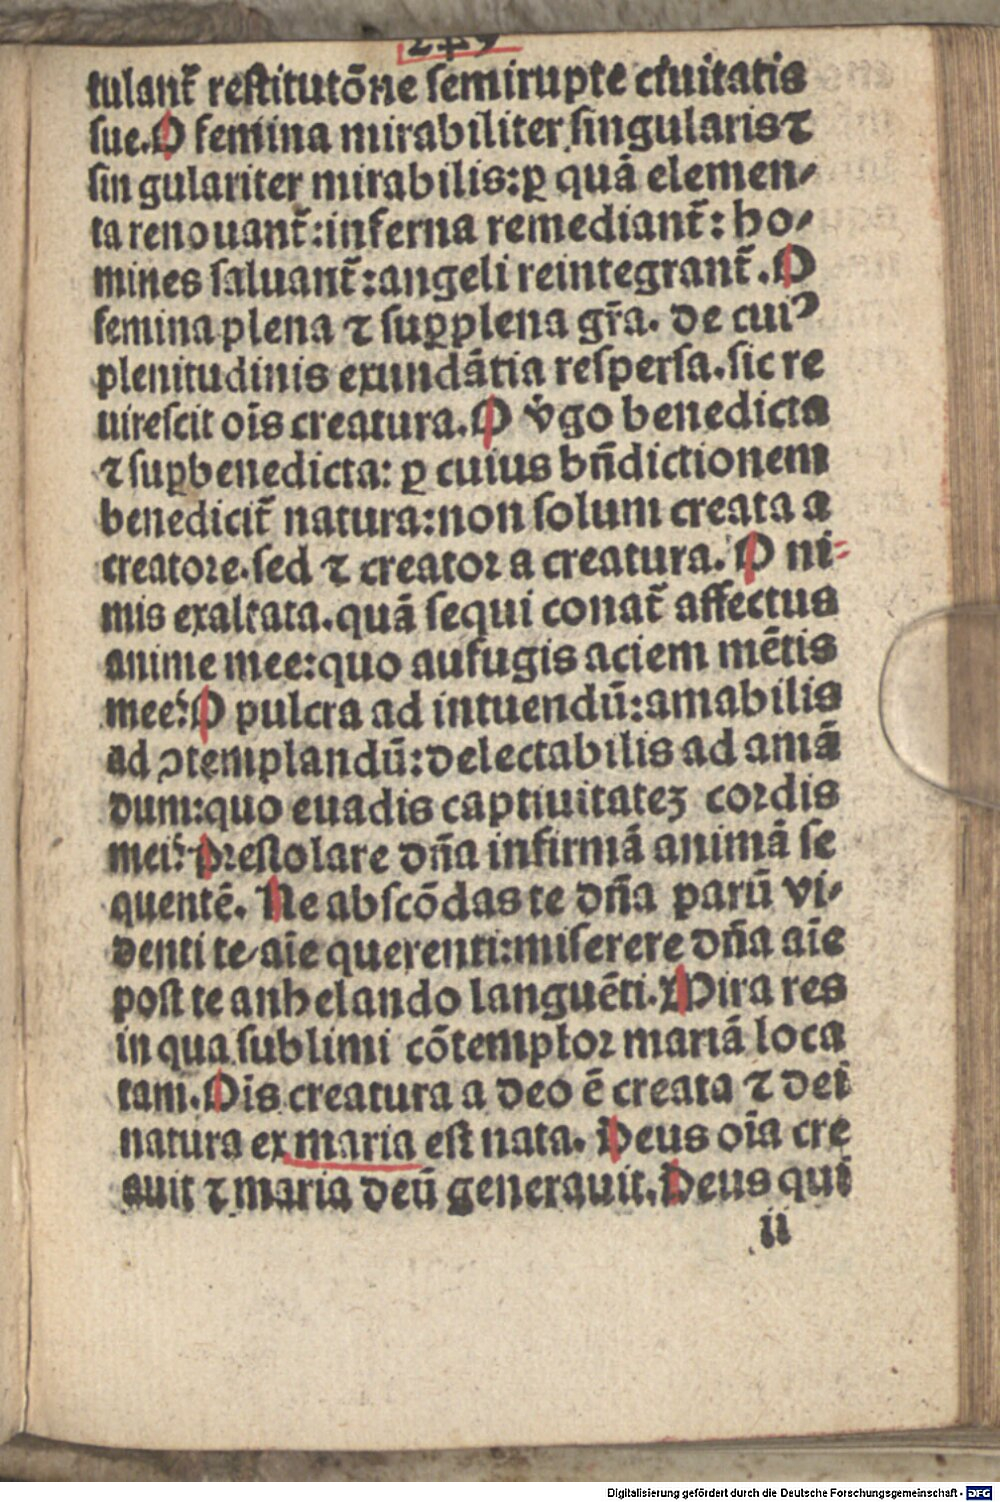 249
tulant᷑ restitutōne semirupte ciuitatis
sue. O femina mirabiliter singularis ⁊
singulariter mirabilis: ꝑ quā elemen⸗
ta renouant᷑: inferna remediant᷑: ho⸗
mines saluant᷑: angeli reintegrant᷑. O
femina plena ⁊ suꝑplena gr̄a. de cuiꝰ
plenitudinis exundātia respersa. sic re
uirescit oīs creatura. O v̄go benedicta
⁊ suꝑbenedicta: ꝑ cuius bn̄dictionem
benedicit᷑ natura: non solum creata a
creatore. sed ⁊ creator a creatura. O ni=
mis exaltata. quā sequi conat᷑ affectus
anime mee: quo aufugis aciem mētis
mee? O pulcra ad intuendū: amabilis
ad ↄtemplandū: delectabilis ad amā
dum: quo euadis captiuitatēꝫ cordis
mei? Prestolare dn̄a infirmā animā se
quentē. Ne abscōdas te dn̄a parū vi⸗
denti te/ aīe querenti: miserere dn̄a aīe
post te anhelando languēti. Mira res
in qua sublimi cōtemplor mariā loca
tam. Oīs creatura a deo ē creata ⁊ dei
natura ex maria est nata. Deus oīa cre
auit ⁊ maria deū generauit. Deus qui
ii
Digitalisierung gefördert durch die Deutsche Forschungsgemeinschaft - DFG